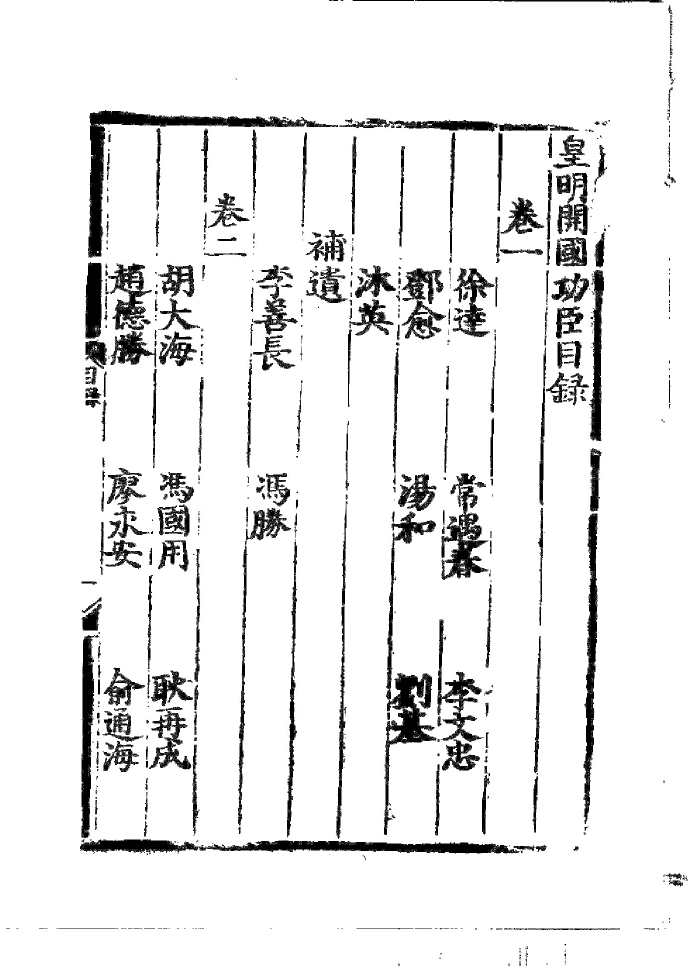 皇明開國功臣目録
卷一
徐達 常遇春 李文忠
鄧愈 湯和 劉基
沐英
補遺
李善長 馮勝
卷二
胡大海 馮國用 耿再成
趙德勝 廖永安 俞通海
目録
一